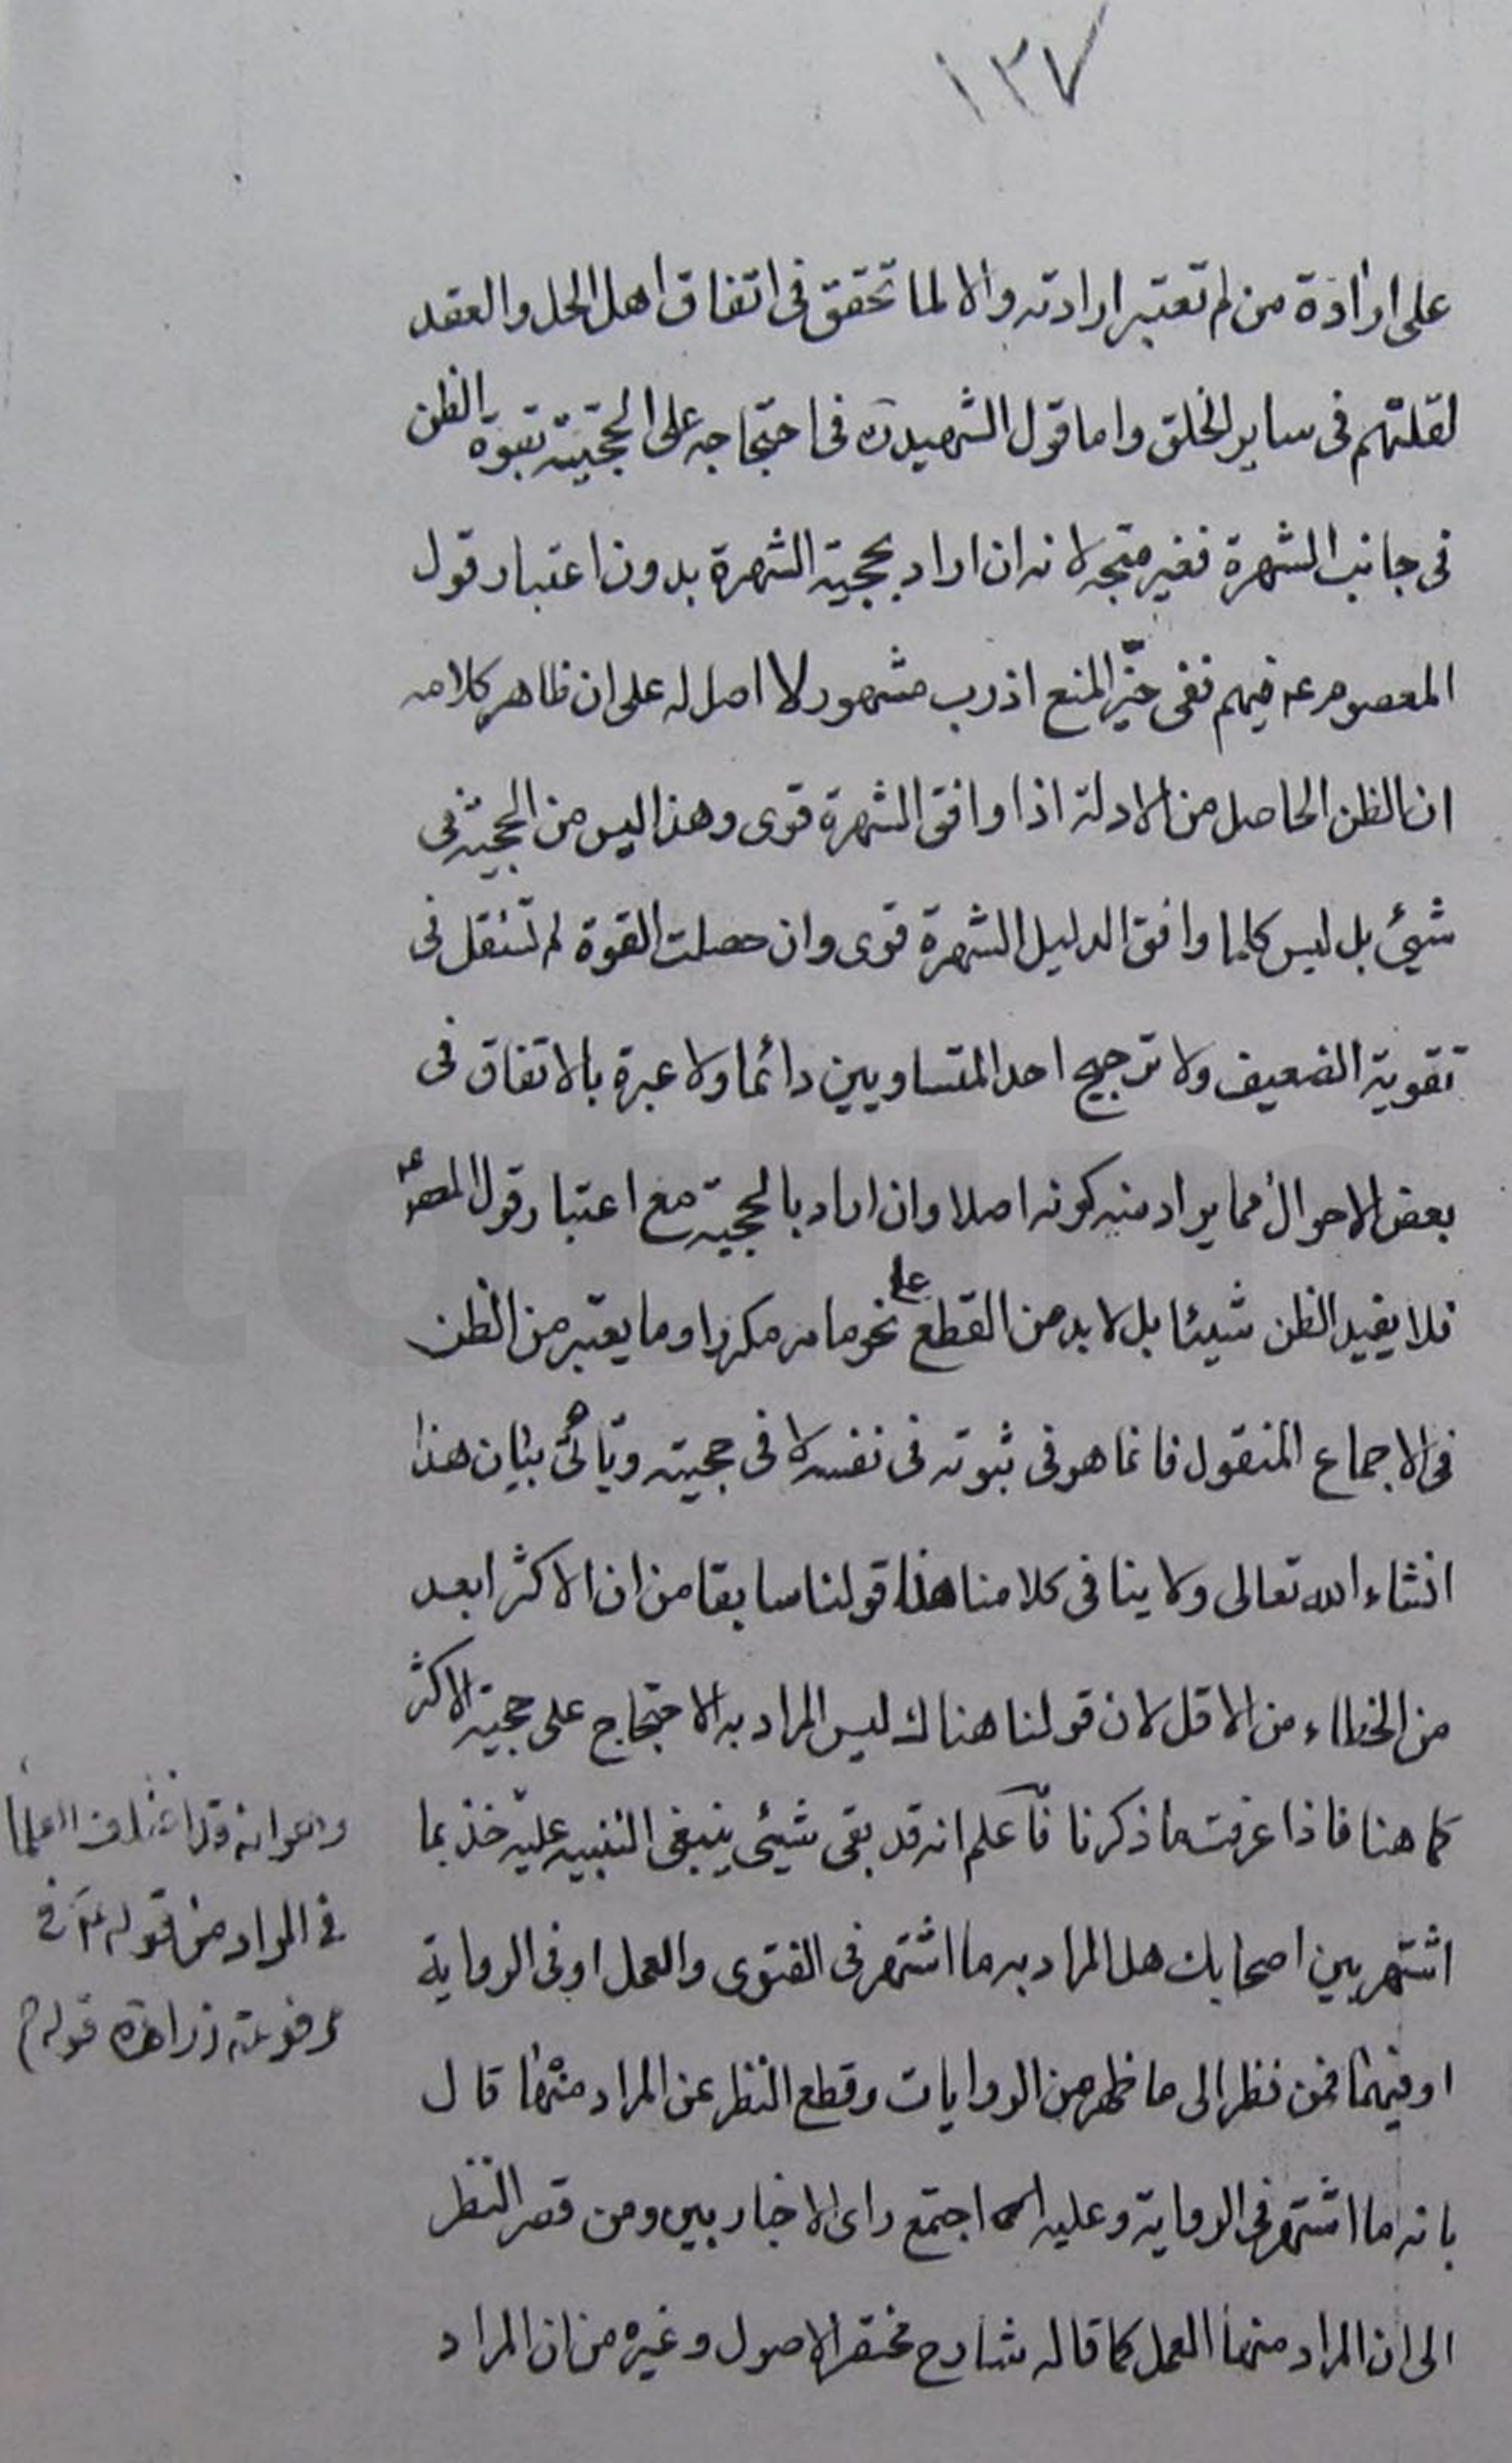 ١٣٧
على ارادة من لم تعتبر ارادته والا لما تحقق فى اتفاق اهل الحل والعقد
لقلتهم فى ساير الخلق واما قول الشهيد ره فى احتجاجه على الحجية بقوة الظن
فى جانب الشهرة فغير متجه لانه ان اراد بحجية الشهرة بدون اعتبار قول
المعصوم ع فيهم ففى حيّز المنع اذ رب مشهور لا اصل له على ان ظاهر كلامه
ان الظن الحاصل من الادلة اذا وافق الشهرة قوى وهذا ليس من الحجية فى
شيئ بل ليس كلما وافق الدليل الشهرة قوى وان حصلت القوة لم تستقل فى
تقوية الضعيف ولا ترجيح احد المتساويين دائما ولا عبرة بالاتفاق فى
بعض الاحوال مما يراد منه كونه اصلا وان اراد بالحجية مع اعتبار قول المعصوم ع
فلا يفيد الظن شيئا بل لا بد من القطع على نحو ما مر مكررا وما يعتبر من الظن
فى الاجماع المنقول فانما هو فى ثبوته فى نفسه لا فى حجيته وياتى بيان هذا
انشاء الله تعالى ولا ينافى كلامنا هذا قولنا سابقا من ان الاكثر ابعد
من الخطاء من الاقل لان قولنا هناك ليس المراد به الاحتجاج على حجية الاكثر
كما هنا فاذا عرفت ما ذكرنا فاعلم انه قد بقى شيئى ينبغى التنبيه عليه خذ بما
اشتهر بين اصحابك هل المراد به ما اشتهر فى الفتوى والعمل او فى الرواية
او فيهما فمن نظر الى ما ظهر من الروايات وقطع النظر عن المراد منها قال
بانه ما اشتهر فى الرواية وعليه اجتمع راى الاخباريين ومن قصر النظر
الى ان المراد منها العمل كما قاله شارح مختصر الاصول وغيره من ان المراد
وهو انه قد اختلف العلما
فى المراد من قوله ع فى
مرفوعة زرارة قوله